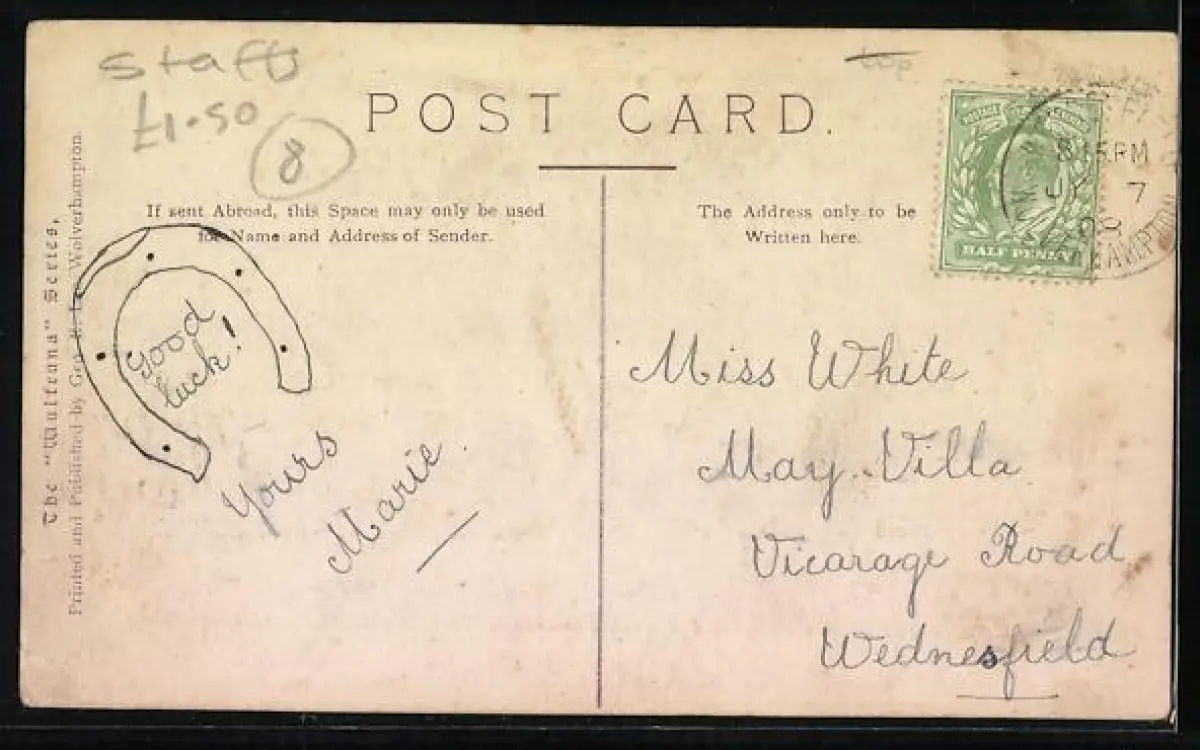 Staffs
£1.50
8
top
POST CARD.
If sent Abroad, this Space may only be used
for Name and Address of Sender.
The Address only to be
Written here.
HALF PENNY
8 15 PM
JY 7
The "Wulfruna" Series,
Printed and Published by Geo. Wolverhampton.
Good
luck!
Yours
Marie.
Miss White
May Villa
Vicarage Road
Wednesfield